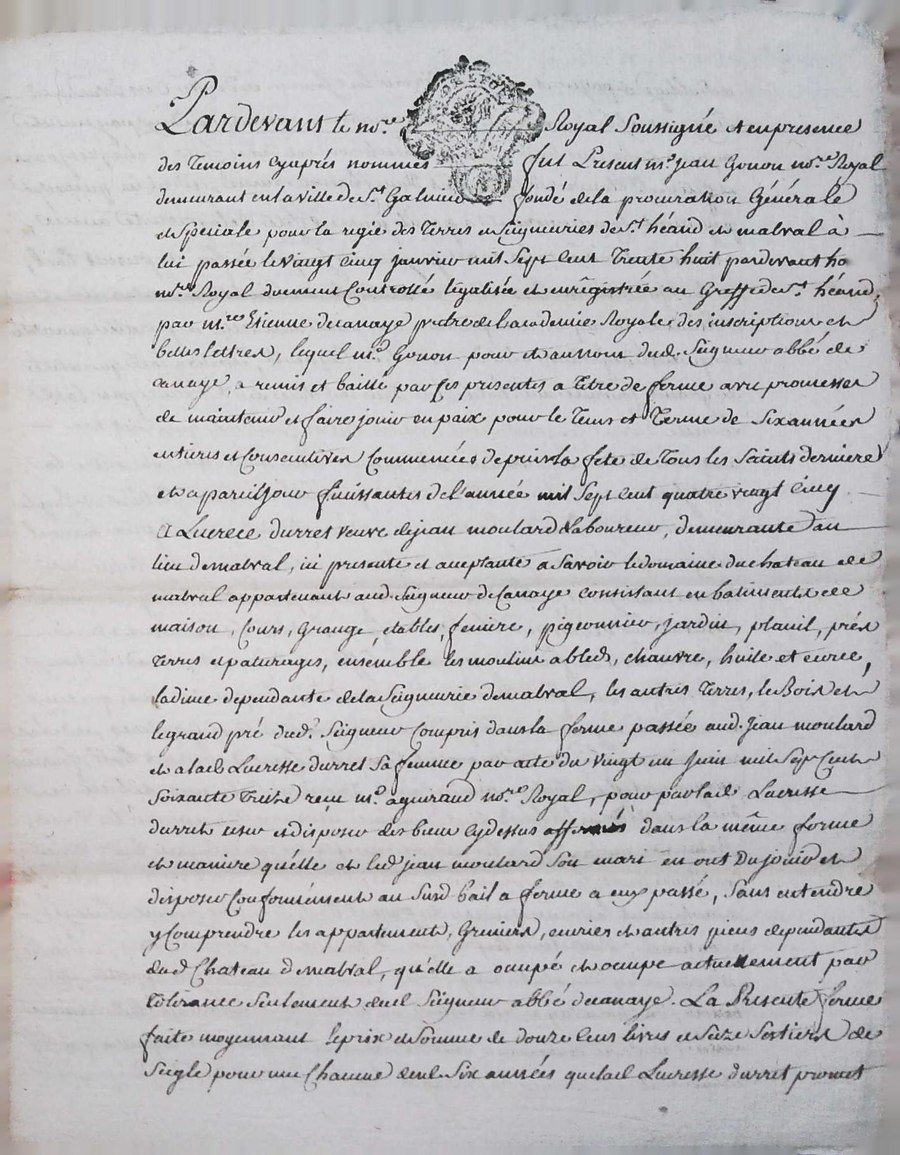 Pardevant le no.re Royal Soussigné et en presence
des Temoins cyaprés nommés fut Present m.e jean Gonon no.re Royal
demeurant en la ville de S.t Galmier fondé de la procuration Générale
et Speciale pour la regie des Terres et Seigneuries de S.t héand et malval à
lui passée le vingt cinq janvier mil Sept Cent Trente huit pardevant
no.re Royal duement Controllé légalisée et enregistrée au Greffe de S.t héand,
par m.re Etienne decanaye pretre de l'academie Royale des inscriptions et
belles lettres, lequel m.e Gonon pour et au nom dud. Seigneur abbé de
canaye, a remis et baillé par Ces presentes a titre de ferme avec promesses
de maintenir et faire jouir en paix pour le Tems et Terme de Six années
entieres et Consecutives Commencées depuis la fete de Tous les Saints derniere
et a pareil jour finissantes de l'année mil Sept Cent quatre vingt Cinq
A Lucrece durret veuve de jean moulard Laboureur, demeurante au
lieu de malval, ici presente et aceptante a Savoir le domaine du chateau de
malval appartenant aud. Seigneur de Canaye Consistant en batiments de
maison, Cours, Grange, etables, feniere, pigeonnier, jardin, planil, prés
terres et paturages, ensemble les moulins a bled, chanvre, huile et
la dime dependante de la Seigneurie de malval, les autres Terres, le Bois et
le grand pré dud. Seigneur Compris dans la ferme passée aud. Jean moulard
et a lad. Lucresse durret Sa femme par acte du vingt un juin mil Sept Cent
Soixante Treize recu m.e aguiraud no.re Royal, pour par lad. Lucresse
durret user et disposer des biens cy dessus affermés dans la même forme
et maniere qu'elle et led. jean moulard Son mari en ont du jouir et
disposer Conformément au Susd. bail a ferme a eux passé, Sans entendre
y Comprendre les appartements, Greniers, ecuries et autres pieces dependantes
dud. Chateau de malval, qu'elle a ocupé et ocupe actuellement par
tolerance Seulement dud. Seigneur abbé de canaye. La Presente ferme
faite moyennant le prix et Somme de douze Cent livres et Seize Septiers de
Seigle pour une Chacune desd. Six années que lad. Lucresse durret promet